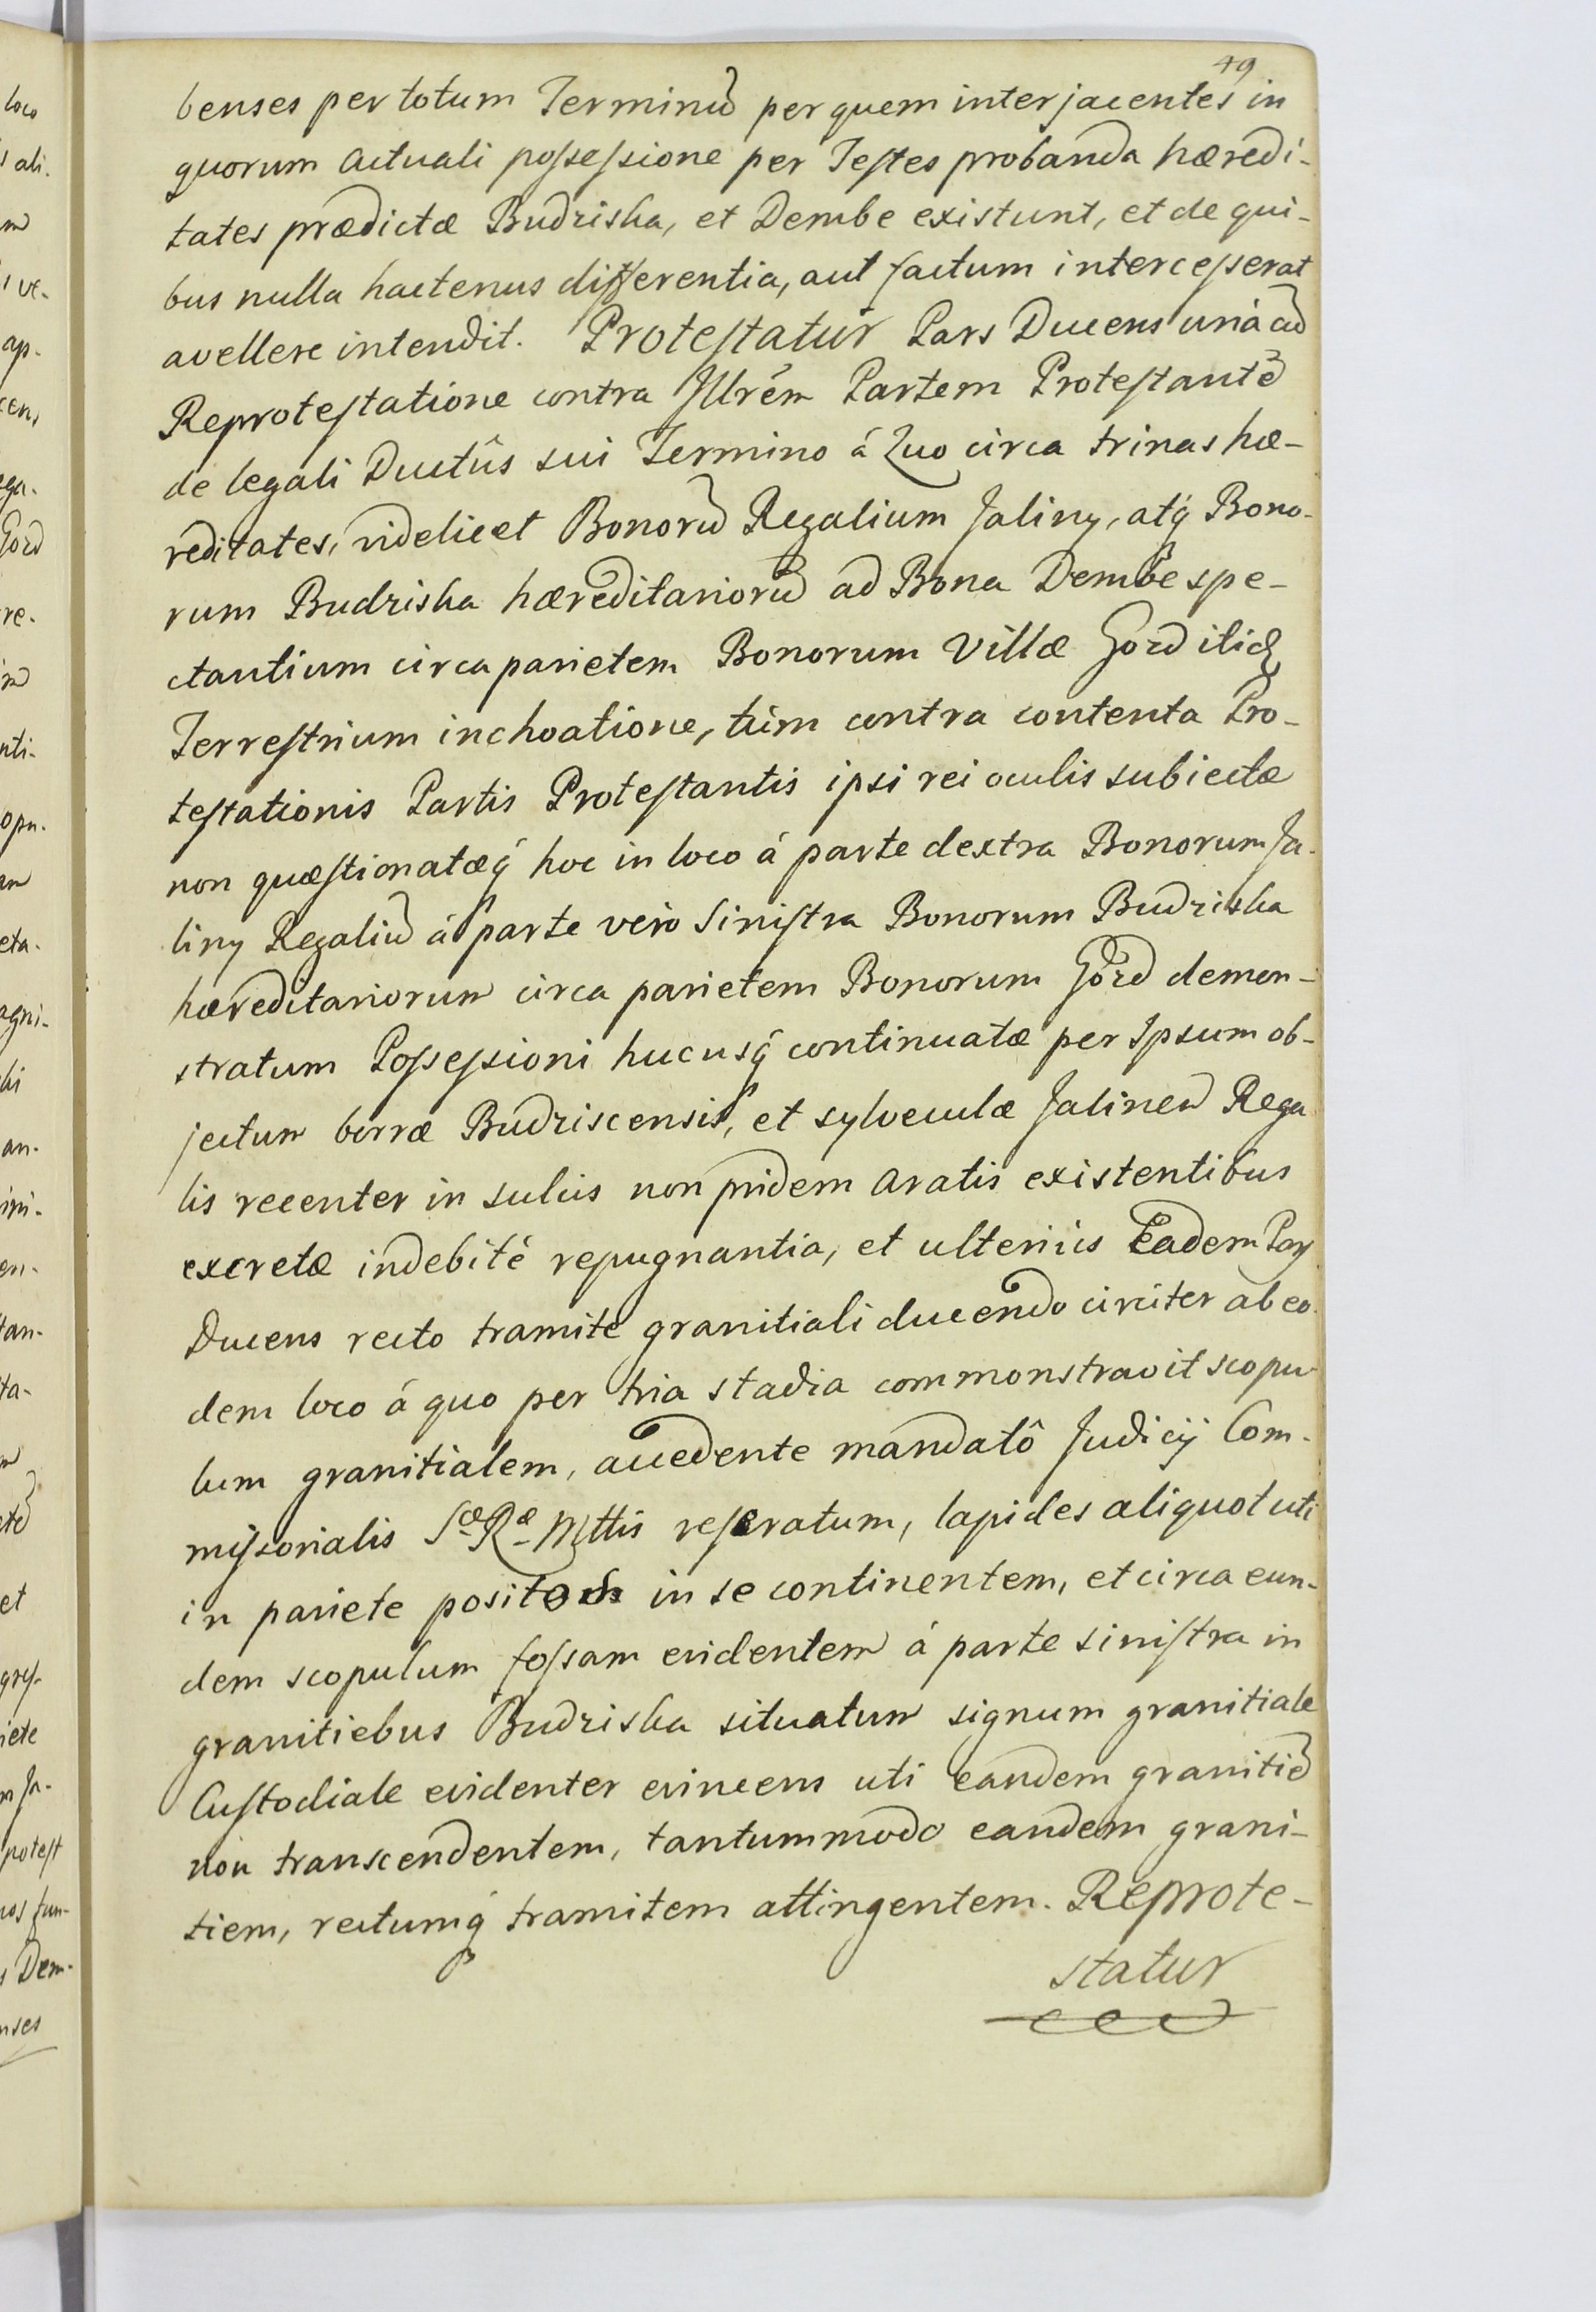 49
benses per totum Terminũ per quem interjacentes in
quorum actuali possessione per Testes probanda hæredi-
tates prædictæ Budziska, et Dembe existunt, et de qui-
bus nulla hactenus differentia, aut factum intercesserat
avellere intendit. Protestatur Pars Ducens unà cũ
Reprotestatione contra Jllrém Partem Protestantẽ
de legali Ductûs sui Termino á Quo circa trinas hæ-
reditates, videlicet Bonorũ Regalium Jaliny, atq́ Bono-
rum Budziska hæreditariorũ ad Bona Dembe spe-
ctantium circa parietem Bonorum Villæ Gozd itidẽ
Terrestrium inchoatione, tùm contra contenta Pro-
testationis Partis Protestantis ipsi rei oculis subiectæ
non quæstionatæq́ hoc in loco á parte dextra Bonorum Ja-
liny Regaliũ á parte verò Sinistra Bonorum Budziska
hæreditariorum circa parietem Bonorum Gozd demon-
stratum Possessioni hucusq́ continuatæ per Ipsum ob-
jectum borræ Budziscensis, et sylveculæ Jalinen Rega
lis recenter in sulcis non pridem aratis existentibus
excretæ indebitè repugnantia, et ulteriùs Eadem Pars
Ducens recto tramite granitiali ducendo circiter ab eo-
dem loco á quo per tria stadia commonstravit scopu-
lum granitialem, accedente mandatô Judicij Com-
missorialis Sæ Ræ Mttis reseratum, lapides aliquot uti
in pariete positos in se continentem, et circa eun-
dem scopulum fossam evidentem á parte sinistra in
granitiebus Budziska situatum signum granitiale
Custodiale evidenter evincens uti eandem granitiẽ
non transcendentem, tantummodo eandem grani-
tiem, rectumq́ tramitem attingentem. Reprote-
statur